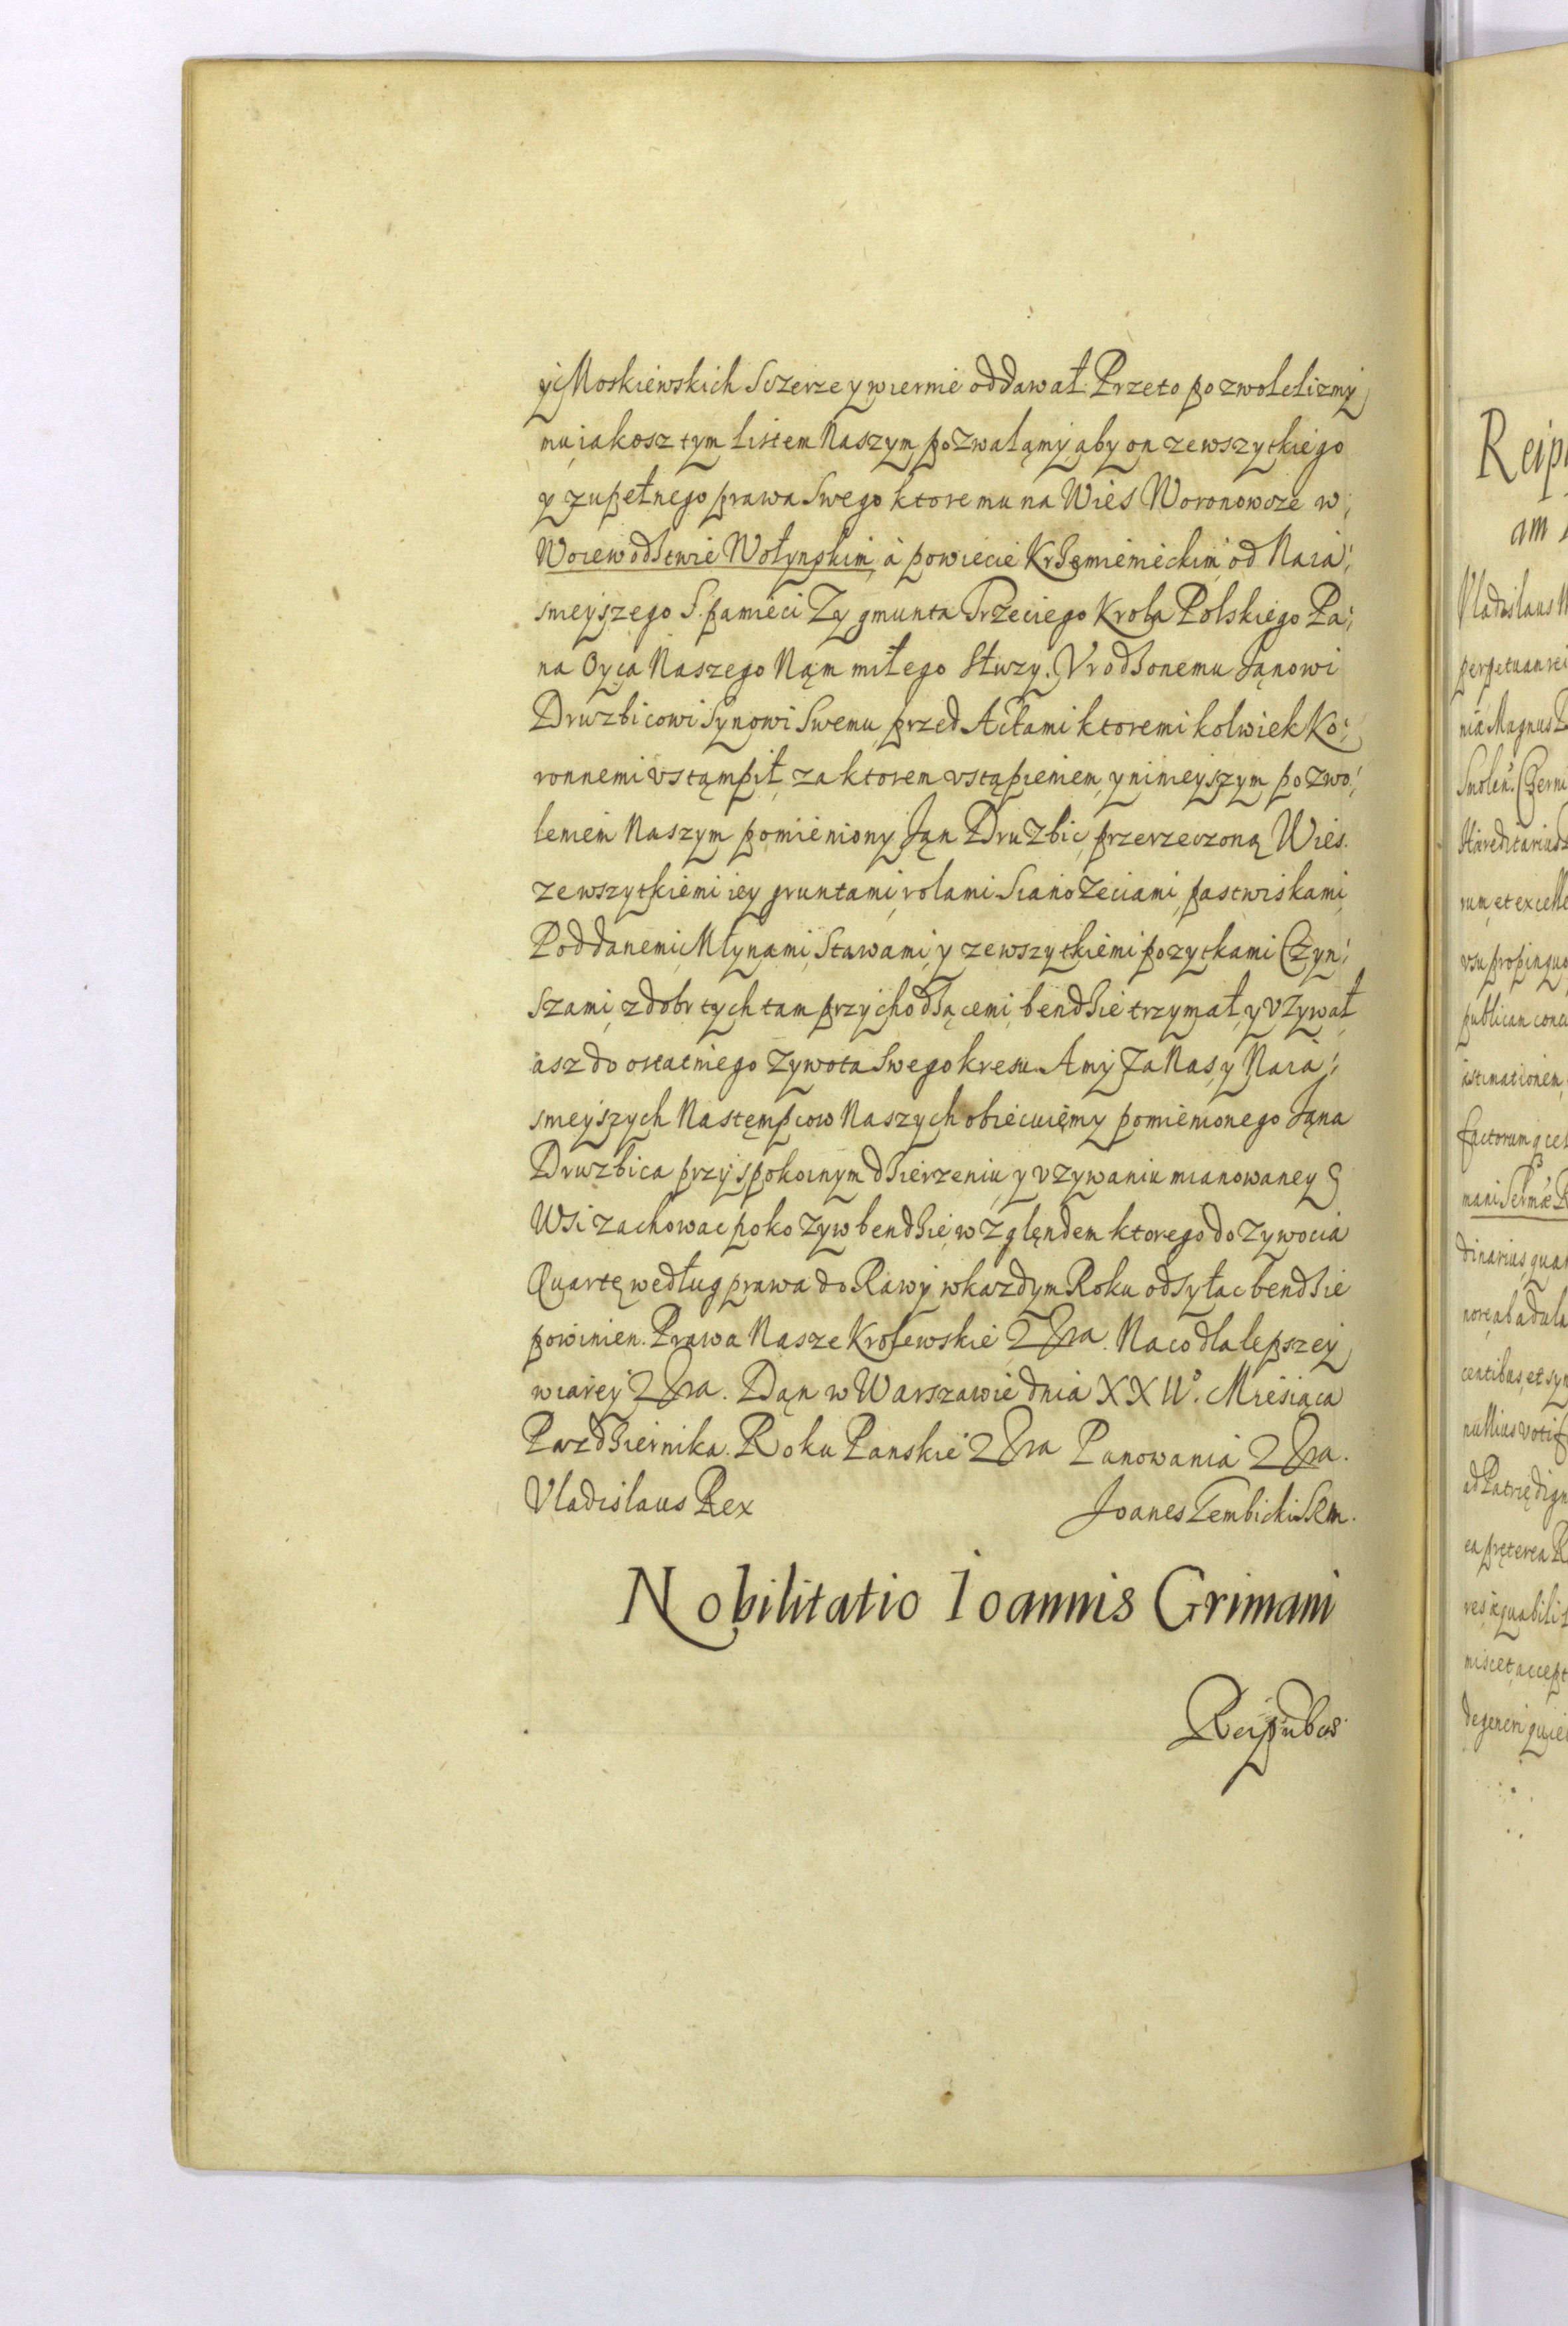 y Moskiewskich Sczerze y wiernie oddawał. Przeto pozwolelizmy
mu, iakosz tym listem Naszym pozwalamy, aby on ze wszytkiego
y zupełnego prawa Swego ktore mu na Wies Woronowcze w;
Woiewodstwie Wołynskim, à powiecie Krzemienieckim od Naia;
sniejszego S. pamieci Zygmunta Trzeciego Krola Polskiego Pa;
na Oyca Naszego Nam miłego słuzy. Vrodzonemu Janowi
Druzbicowi Synowi Swemu przed Actami ktoremi kolwiek Ko;
ronnemi vstąmpił, za ktorem vstąpieniem, y ninieyszym pozwo;
leniem Naszym pomieniony Jan Druzbic, przerzeczoną Wies.
ze wszytkiemi iey gruntami, rolami Sianozeciami, pastwiskami,
Poddanemi, Młynami, Stawami, y ze wszytkiemi pozytkami Czyn;
szami, z dobr tych tam przychodzącemi, bendzie trzymał, y vzywał,
asz do ostatniego zywota Swego kresu. A my za Nas, y Naia;
sniejszych Nastęmpcow Naszych obiecuiemy pomienionego Jana
Druzbica przy spokoinym dzierzeniu, y vzywaniu mianowaney
Wsi zachowac poko zyw bendzie, względem ktorego dozywocia
Quartę według prawa do Rawy, w kazdym Roku odsyłac bendzie
powinien. Prawa Nasze Krolewskie etc. Na co dla lepszey
wiarey etc. Dan w Warszawie dnia XXII°. Miesiąca
Pazdziernika. Roku Panskie° etc. Panowania etc.
Vladislaus Rex Joanes Lembicki Sem.
Nobilitatio Ioannis Grimani
Reipub
Reip
am
Vladislaus
perpetuam rei
nia Magnus
Smolen. Czerni
Hæreditarius
rum, et excelle
vsu propinquo
publicam
æstimationem
factorum
mani
dinarius, quam
nore, ab adula
centibus, et
nullius voti
ad Patriæ dign
ea præterea
res
miscet, accept
degeneri